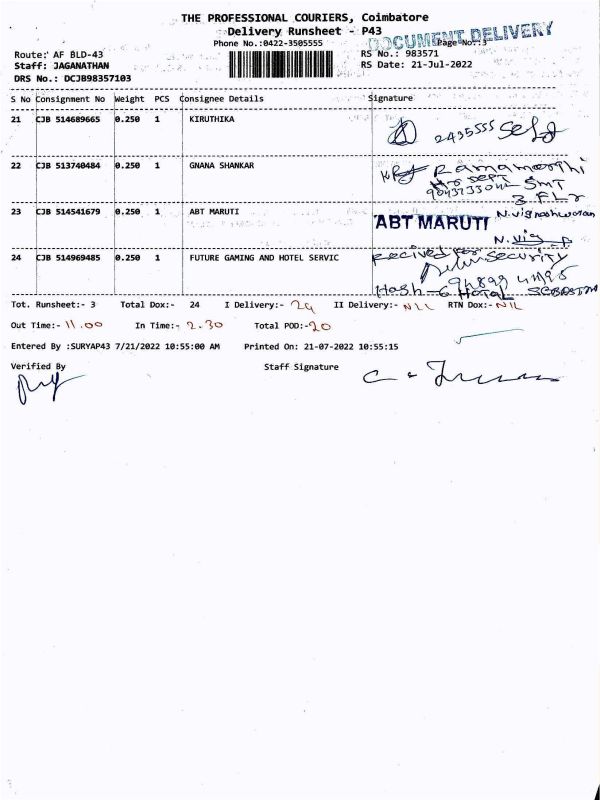 THE PROFESSIONAL COURIERS, Coimbatore
Delivery Runsheet - P43
DOCUMENT DELIVERY
Phone No.:0422-3505555 Page No.:3
Route: AF BLD-43 RS No.: 983571
Staff: JAGANATHAN RS Date: 21-Jul-2022
DRS No.: DCJB98357103
S No Consignment No Weight PCS Consignee Details Signature
21 CJB 514689665 0.250 1 KIRUTHIKA
2435555 Self
22 CJB 513740484 0.250 1 GNANA SHANKAR
Ramamoorthi
SMT
3 FLr
23 CJB 514541679 0.250 1 ABT MARUTI
N.vigneshwaran
ABT MARUTI
24 CJB 514969485 0.250 1 FUTURE GAMING AND HOTEL SERVIC
Recived for
Security
Hash-6 Hotal
Tot. Runsheet:- 3 Total Dox:- 24 I Delivery:- 24 II Delivery:- NIL RTN Dox:- NIL
Out Time:- 11.00 In Time:- 2.30 Total POD:- 20
Entered By :SURYAP43 7/21/2022 10:55:00 AM Printed On: 21-07-2022 10:55:15
Verified By Staff Signature